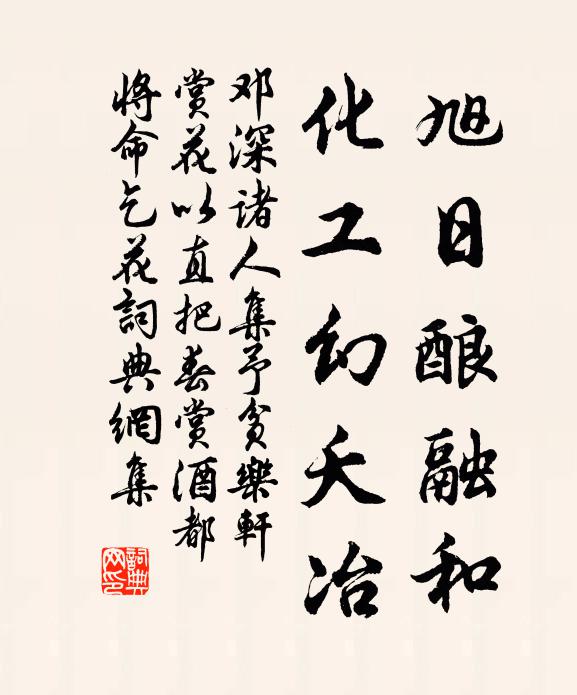 旭日酿融和
化工幻夭冶
邓深诸人集予贫樂軒
赏花以直把春赏酒都
将命乞花詞典網集
詞典网印